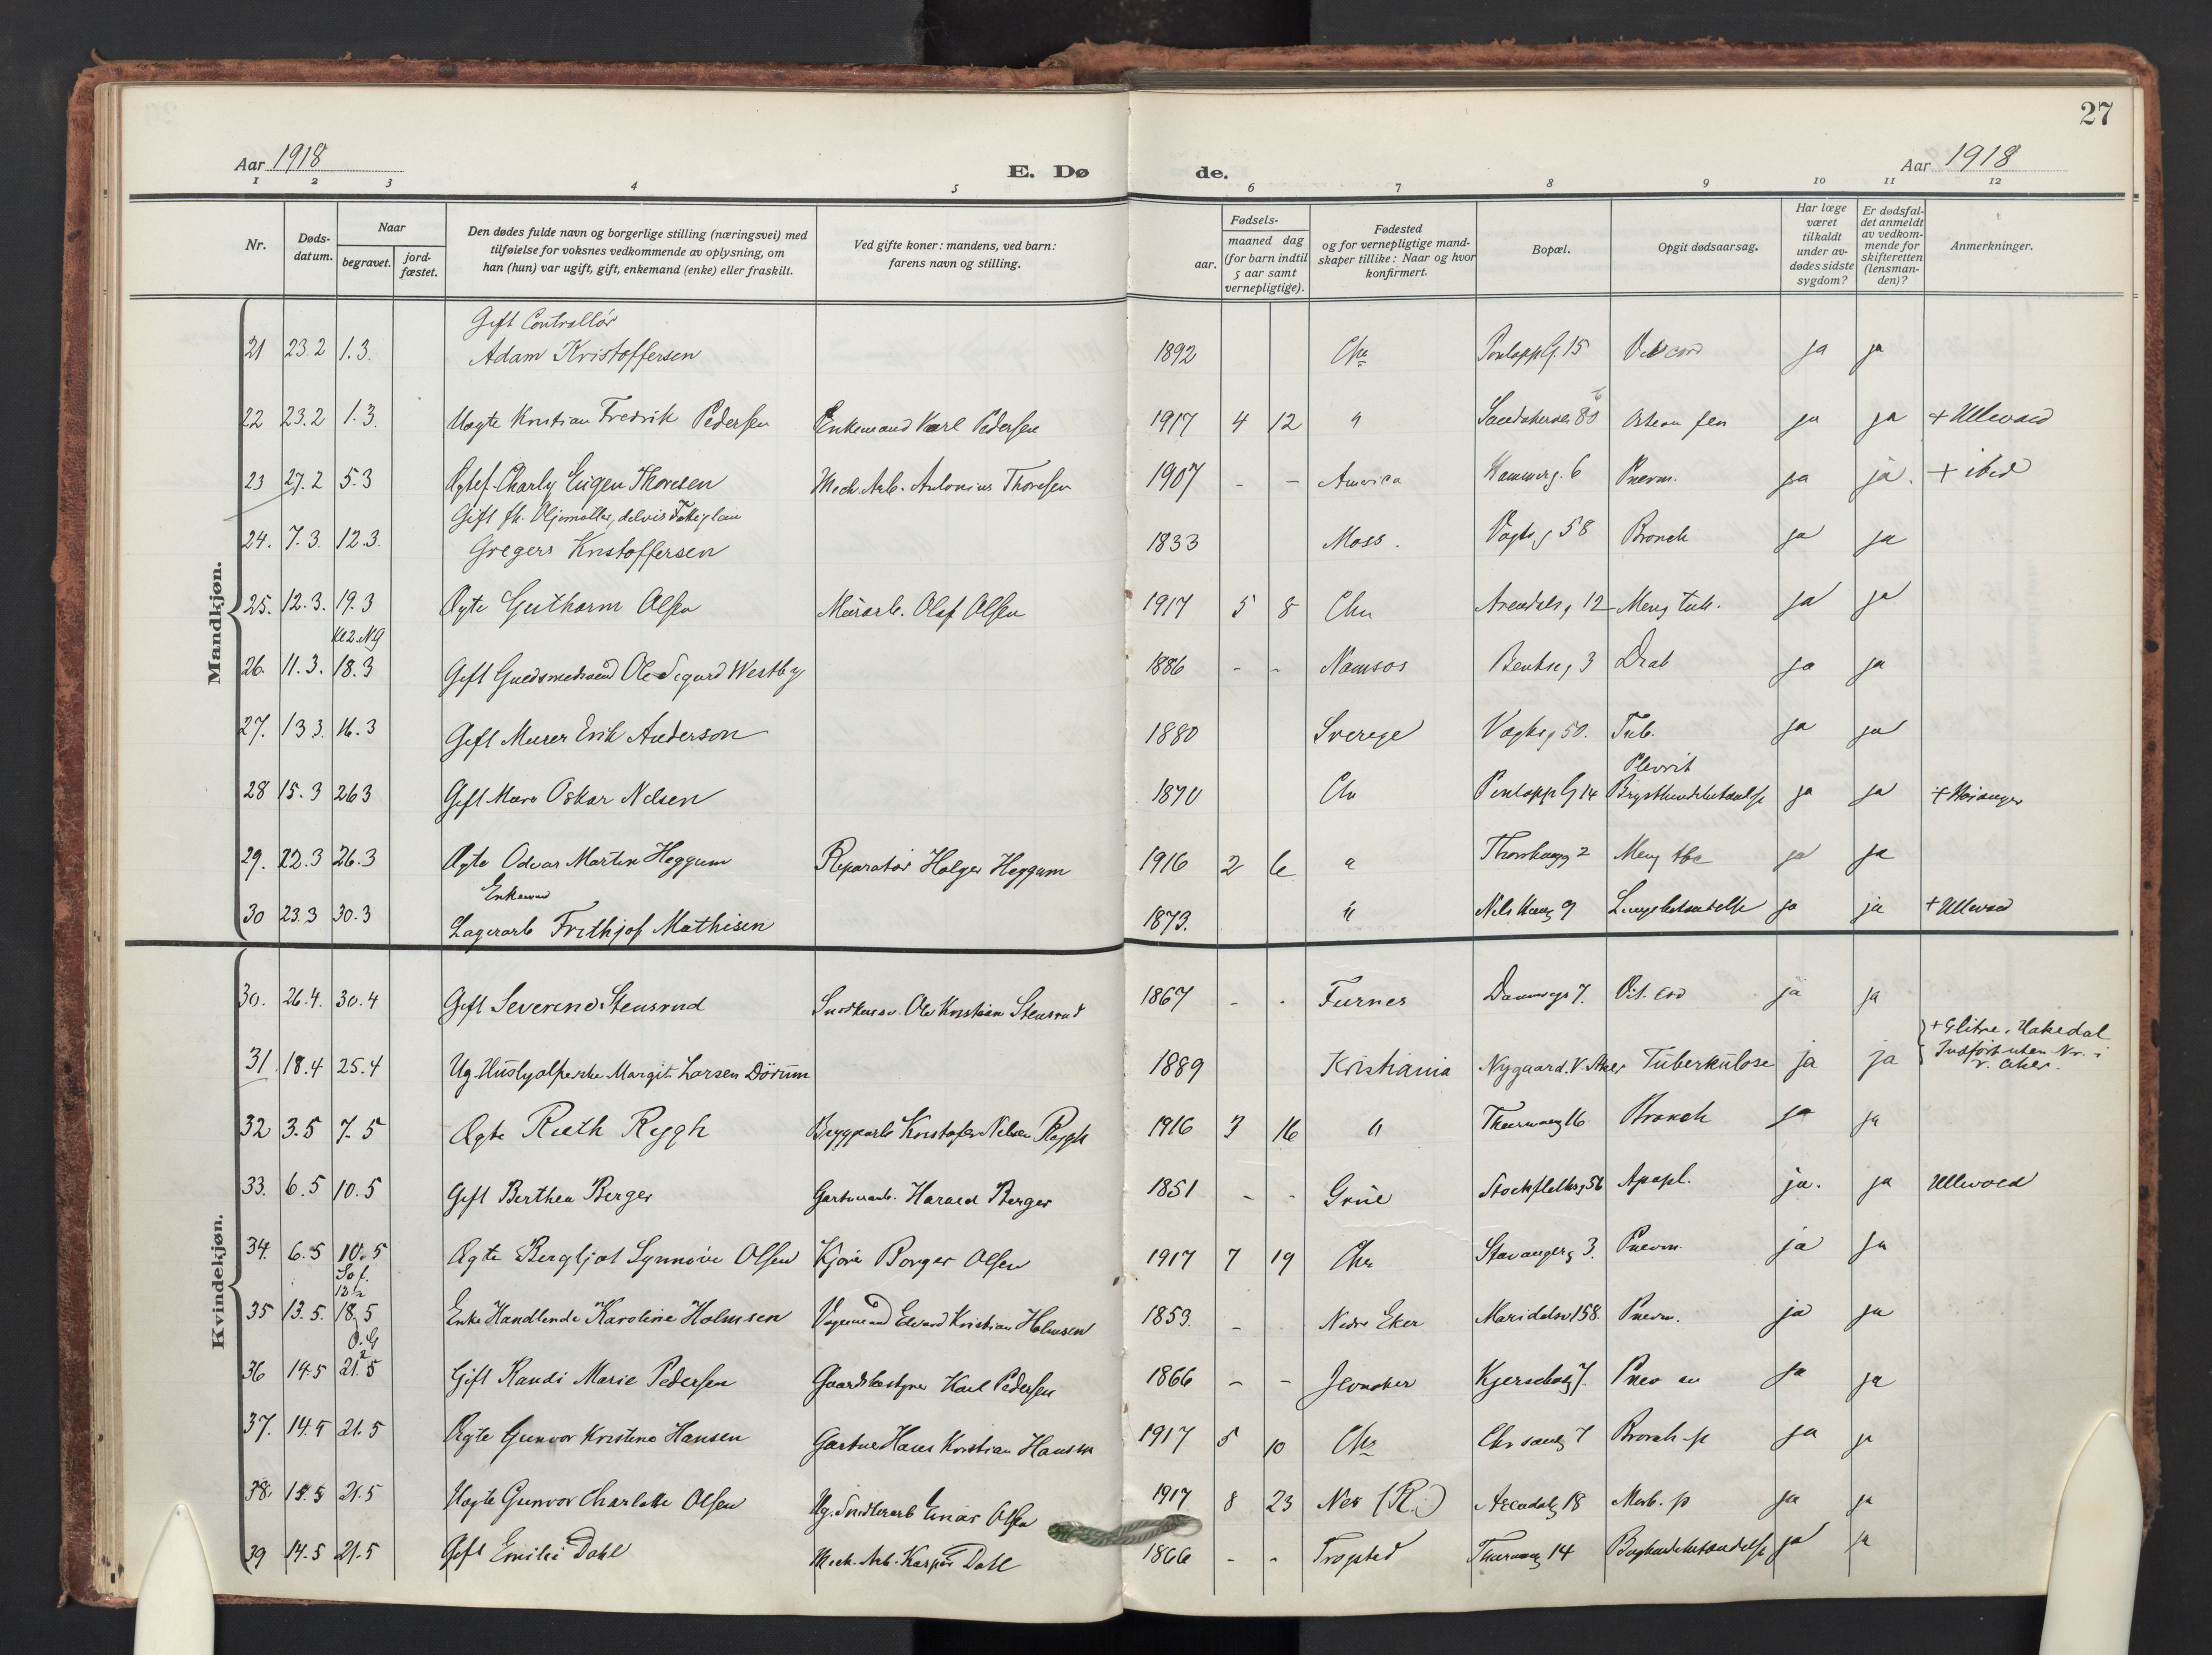 27
Aar 1918
E. Dø
de.
Aar 1918
1 2 3 4 5 6 7 8 9 10 11 12
Nr.
Døds-
datum.
Naar
begravet.
jord-
fæstet.
Den dødes fulde navn og borgerlige stilling (næringsvei) med
tilføielse for voksnes vedkommende av oplysning, om
han (hun) var ugift, gift, enkemand (enke) eller fraskilt.
Ved gifte koner: mandens, ved barn:
farens navn og stilling.
Fødsels-
aar.
maaned dag
(for barn indtil
5 aar samt
vernepligtige).
Fødested
og for vernepligtige mand-
skaper tillike: Naar og hvor
konfirmert.
Bopæl.
Opgit dødsaarsag.
Har læge
været
tilkaldt
under av-
dødes sidste
sygdom?
Er dødsfal-
det anmeldt
av vedkom-
mende for
skifteretten
(lensman-
den)?
Anmerkninger.
Mandkjøn.
Gift Contrallör
21 23.2 1.3. Adam Kristoffersen 1892 Chr 15 ja ja
22 23.2 1.3. Uægte Kristian Fredrik Pedersen Enkemand Karl Pedersen 1917 4 12 " ja ja + Ullevaal
23 27.2 5.3 Ægtef. Charly Eugen Thoresen Mech. Arb. Antonius Thoresen 1907 - - America Hammerg. 6 Pnevm. ja ja. + ibid
Gift fh.
24. 7.3. 12.3. Gregers Kristoffersen 1833 Moss. Vogtsg 58 Bronch ja ja
25. 12.3. 19.3 Ægte Guthorm Olsen Murarb. Olaf Olsen 1917 5 8 Chr Arendalsg 12 Meng tub. ja ja
Kl 2. NG
26. 11.3. 18.3 Gift Guldsmedsvend Ole Sigurd Westby 1886 - - Namsos Bentseg 3 Diab ja ja
27. 13 3. 16.3 Gift Murer Erik Anderson 1880 Sverige Vogtsg 50. Tub. ja ja
Plevrit
28 15.3 26 3 Gift Murer Oskar Nilsen 1870 Chr 14 Brysthindebetændelse ja ja
29. 22.3 26.3 Ægte Odvar Martin Heggum Reparatör Holger Heggum 1916 2 6 " 2 Meng tbc ja ja
Enkemand
30 23.3 30.3 Lagerarb Frithjof Mathisen 1873. " 9 Lungebetændelse ja ja + Ullevaal
Kvindekjøn.
30. 26.4. 30.4 Gift Severine Stensrud Ole Kristian Stensrud 1867 - - Furnes 7. Vit. cod ja ja
+ Glitre, Hakedal
31 18.4 25.4 Ug. Margit Larsen Dörum 1889 Kristiania Nygaard. V. Aker Tuberkulose ja ja Indfört uten Nr. i
V. Aker.
32 3.5 7.5 Ægte Ruth Rygh Kristofer Nilsen Rygh 1916 3 16 " 16 Bronch ja ja
33. 6.5 10.5 Gift Berthea Berger Gartnerarb. Harald Berger 1851 - - Grue Stockflethsg 56 Apopl. ja. ja Ullevaal
34. 6.5 10.5 Ægte Bergljot Synnöve Olsen Borger Olsen 1917 7 19 Chr Stavangerg 3. Pnevm. ja ja
35 13.5. 18.5 Enke Handlende Karoline Holmsen Edvard Kristian Holmsen 1853. - Nedre Eker Maridalsv 158. Pnevm. ja ja
36 14.5 21.5 Gift Randi Marie Pedersen Gaardsbestyrer Karl Pedersen 1866 - - Jevnaker 7 ja ja
37. 14.5 21.5 Ægte Gunvor Kristine Hansen Gartner Hans Kristian Hansen 1917 5 10 Chr 7 Bronch-p ja ja
38. 15.5 21.5 Uægte Gunvor Charlotte Olsen Ug. Einar Olsen 1917 8 23 Nes (R.) Arendalsg 18 Morb. p ja ja
39 14.5 21.5 Gift Emilie Dahl Mech. Arb. Kaspar Dahl 1866 - - Trøgstad 14 ja ja